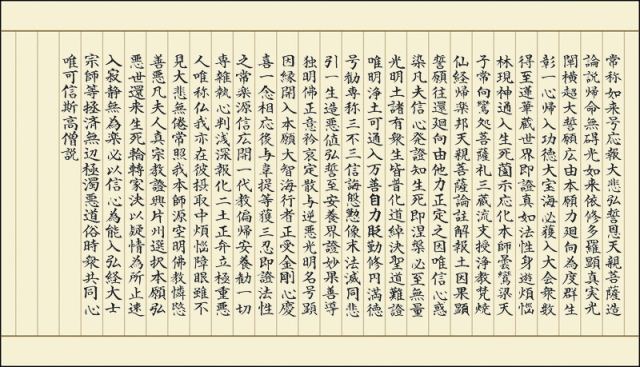 常称如来号応報大悲弘誓恩天親菩薩造
論説帰命無碍光如来依修多羅顕真実光
闡横超大誓願広由本願力廻向為度群生
彰一心帰入功徳大宝海必獲入大会衆数
得至蓮華蔵世界即證真如法性身遊煩悩
林現神通入生死薗示応化本師曇鸞梁天
子常向鸞処菩薩礼三蔵流支授浄教梵焼
仙経帰楽邦天親菩薩論註解報土因果顕
誓願往還廻向由他力正定之因唯信心惑
染凡夫信心発證知生死即涅槃必至無量
光明土諸有衆生皆普化道綽決聖道難證
唯明浄土可通入万善自力貶勤修円満徳
号勧専称三不三信誨慇懃像末法滅同悲
引一生造悪値弘誓至安養界證妙果善導
独明佛正意矜哀定散与逆悪光明名号顕
因縁開入本願大智海行者正受金剛心慶
喜一念相応後与韋提等獲三忍即證法性
之常楽源信広開一代教偏帰安養勧一切
専雑執心判浅深報化二土正弁立極重悪
人唯称仏我亦在彼摂取中煩悩障眼雖不
見大悲無倦常照我本師源空明佛教憐愍
善悪凡夫人真宗教證興片州選択本願弘
悪世還来生死輪転家決以疑情為所止速
入寂静無為楽必以信心為能入弘経大士
宗師等拯済無辺極濁悪道俗時衆共同心
唯可信斯高僧説